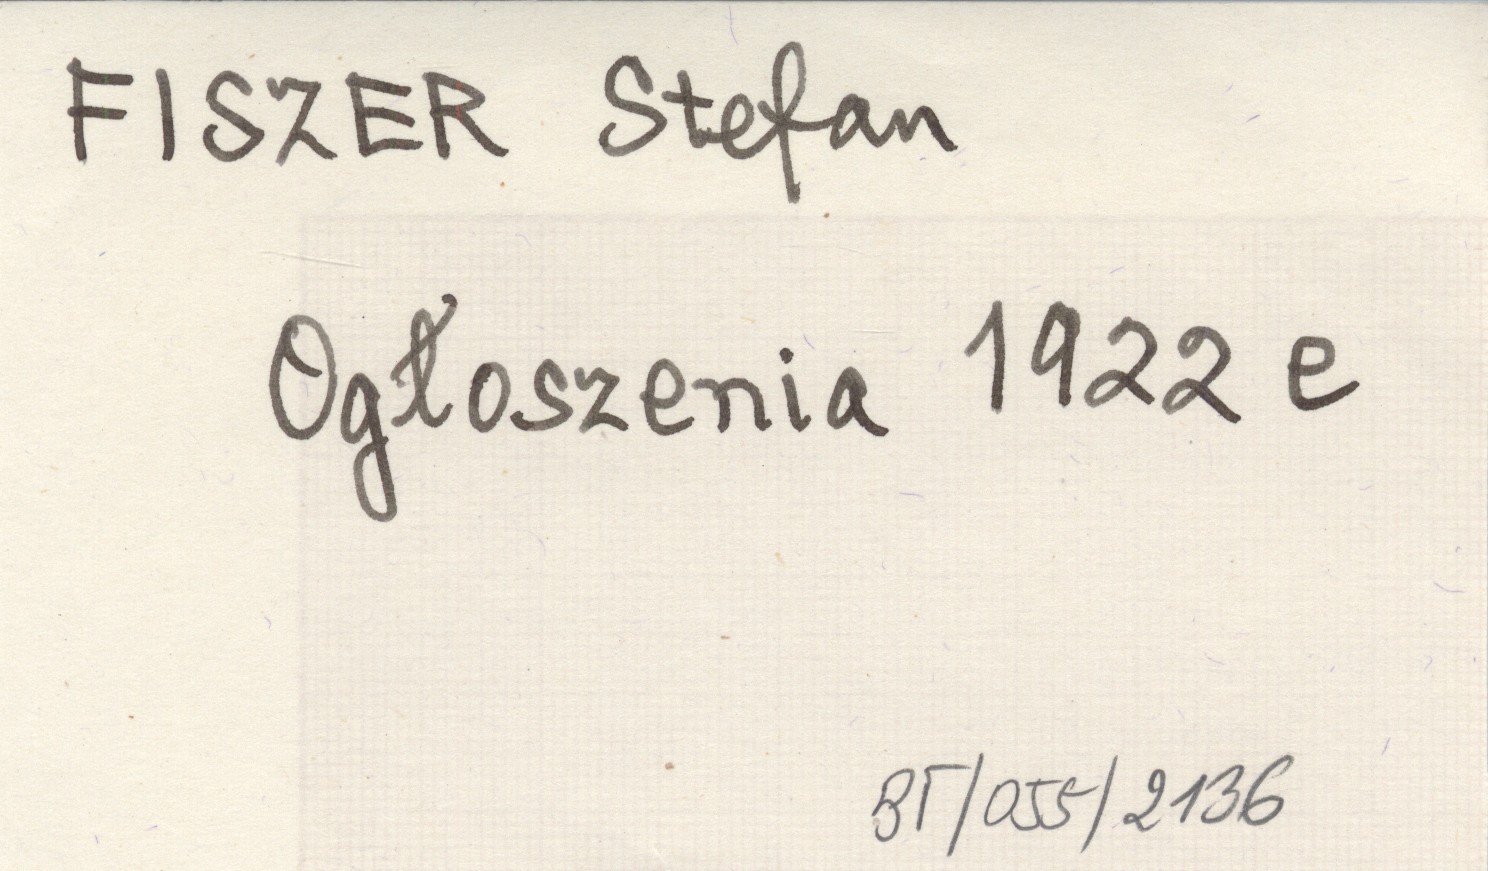 FISZER Stefan
Ogłoszenia 1922 e
BT/055/2136